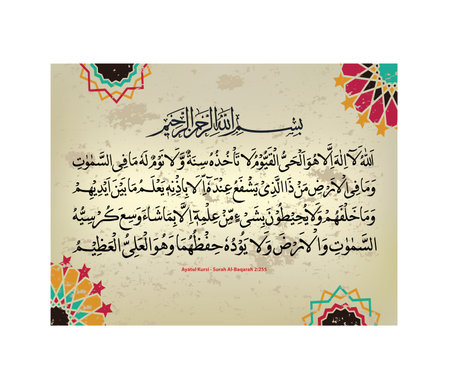 بِسْمِ اللهِ الرَّحْمٰنِ الرَّحِيْمِ
اَللهُ لَآ اِلٰهَ اِلَّا هُوَ الْحَيُّ الْقَيُّوْمُ لَا تَأْخُذُهٗ سِنَةٌ وَّلَا نَوْمٌ لَهٗ مَا فِى السَّمٰوٰتِ
وَمَا فِى الْاَرْضِ مَنْ ذَا الَّذِيْ يَشْفَعُ عِنْدَهٗٓ اِلَّا بِاِذْنِهٖ يَعْلَمُ مَا بَيْنَ اَيْدِيْهِمْ
وَمَا خَلْفَهُمْ وَلَا يُحِيْطُوْنَ بِشَيْءٍ مِّنْ عِلْمِهٖٓ اِلَّا بِمَا شَآءَ وَسِعَ كُرْسِيُّهُ
السَّمٰوٰتِ وَالْاَرْضَ وَلَا يَؤُدُهٗ حِفْظُهُمَا وَهُوَ الْعَلِيُّ الْعَظِيْمُ
Ayatul Kursi - Surah Al-Baqarah 2:255